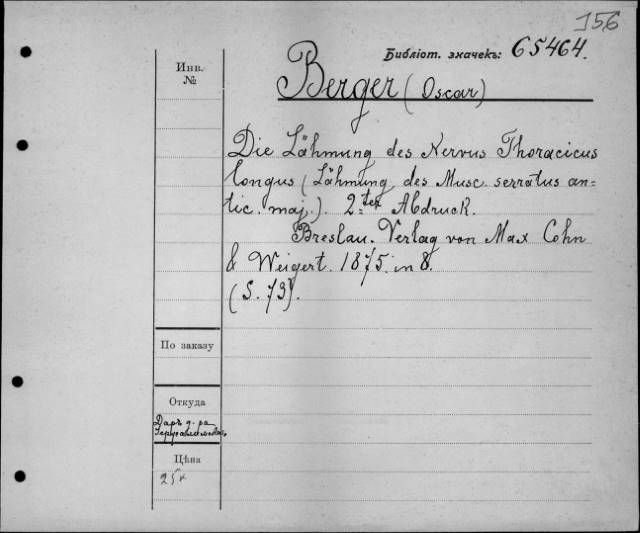 156
Библіот. значекъ: 65464.
Инв.
№
Berger (Oscar)
Die Lähmung des Nervus Thoracicus
longus (Lähmung des Musc. serratus an=
tic. maj.). 2ter Abdruck.
Breslau. Verlag von Max Cohn
& Weigert. 1875. in 8.
(S. 73).
По заказу
Откуда
Даръ д-ра
Цѣна
25к